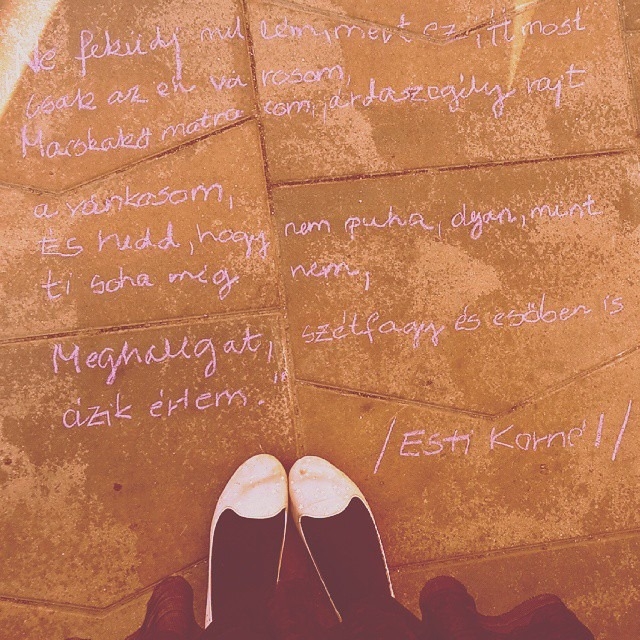 Ne feküdj mellém, mert ez itt most
Csak az én városom,
Macskakő matracom, járdaszegély rajt
a vánkosom,
És hidd, hogy nem puha, olyan, mint
ti soha még nem,
Meghallgat, szétfagy és esőben is
ázik értem."
/Esti Kornél/